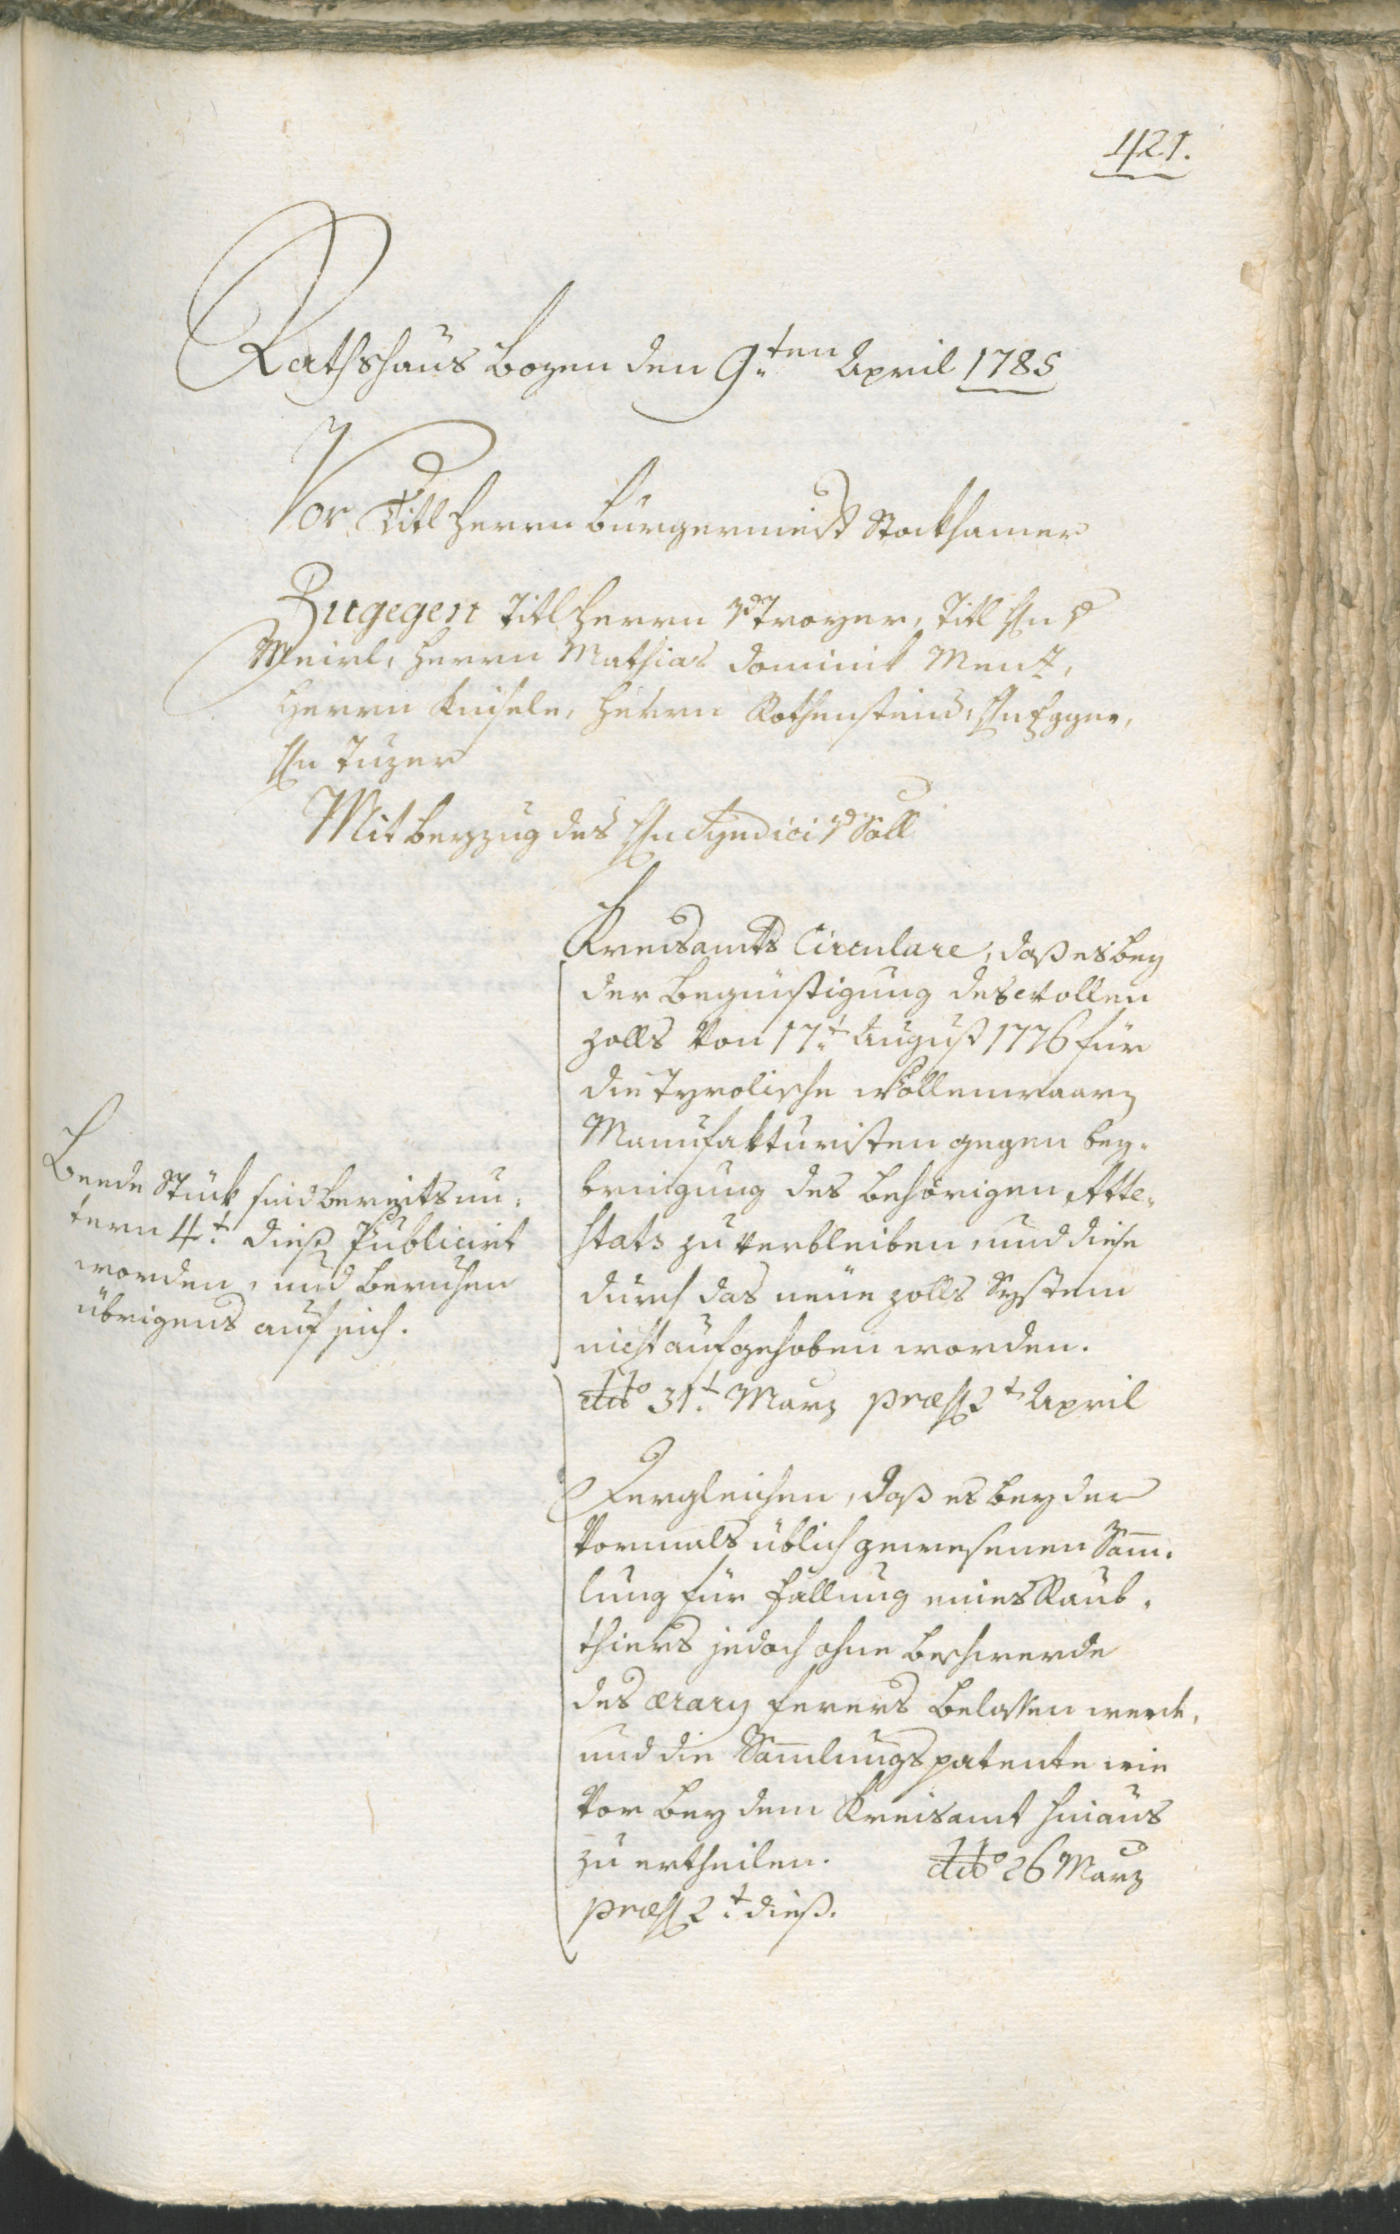 421.
Rathshaus Bozen den 9ten April 1785
Vor Titl Herrn Bürgermeist Stockhamer
Zugegen Titl Herrn v Troyer, Titl Hn v
Meirl, Herrn Mathias Dominik Menz,
Herrn Kniesele, Herrn Rothensteiner, Hn Egger,
Hn Tuzer
Mit Beyzug des Hn Syndici v Söll
Kreisamts Circulare, daß es bey
der Begünstigung des Wollen
zolls von 17t August 1776 für
die Tyrolische Wollenwaarn
Manufakturisten gegen bey-
bringung des behörigen Atte-
stats zu verbleiben, und diese
durch das neüe Zolls System
nicht aufgehoben worden.
ddo 31t Marz præs 2t April
Beede Stück sind bereits un-
term 4t dieß Publicirt
worden, und beruhen
übrigens auf sich.
Dergleichen, daß es bey der
vormals üblich gewesenen Sam̄-
lung für Fällung eines Raub-
thiers jedoch ohne Beschwerde
des ærary ferers belassen werde,
und die Sam̄lungspatente wie
vor bey dem Kreisamt hinaus
zu ertheilen. ddo 26 Marz
præs 2t dieß.